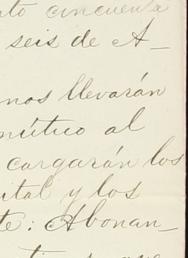 to cincuenta
seis de A-
nos llevarán
mútuo al
cargarán los
ital y los
te: Abonan-